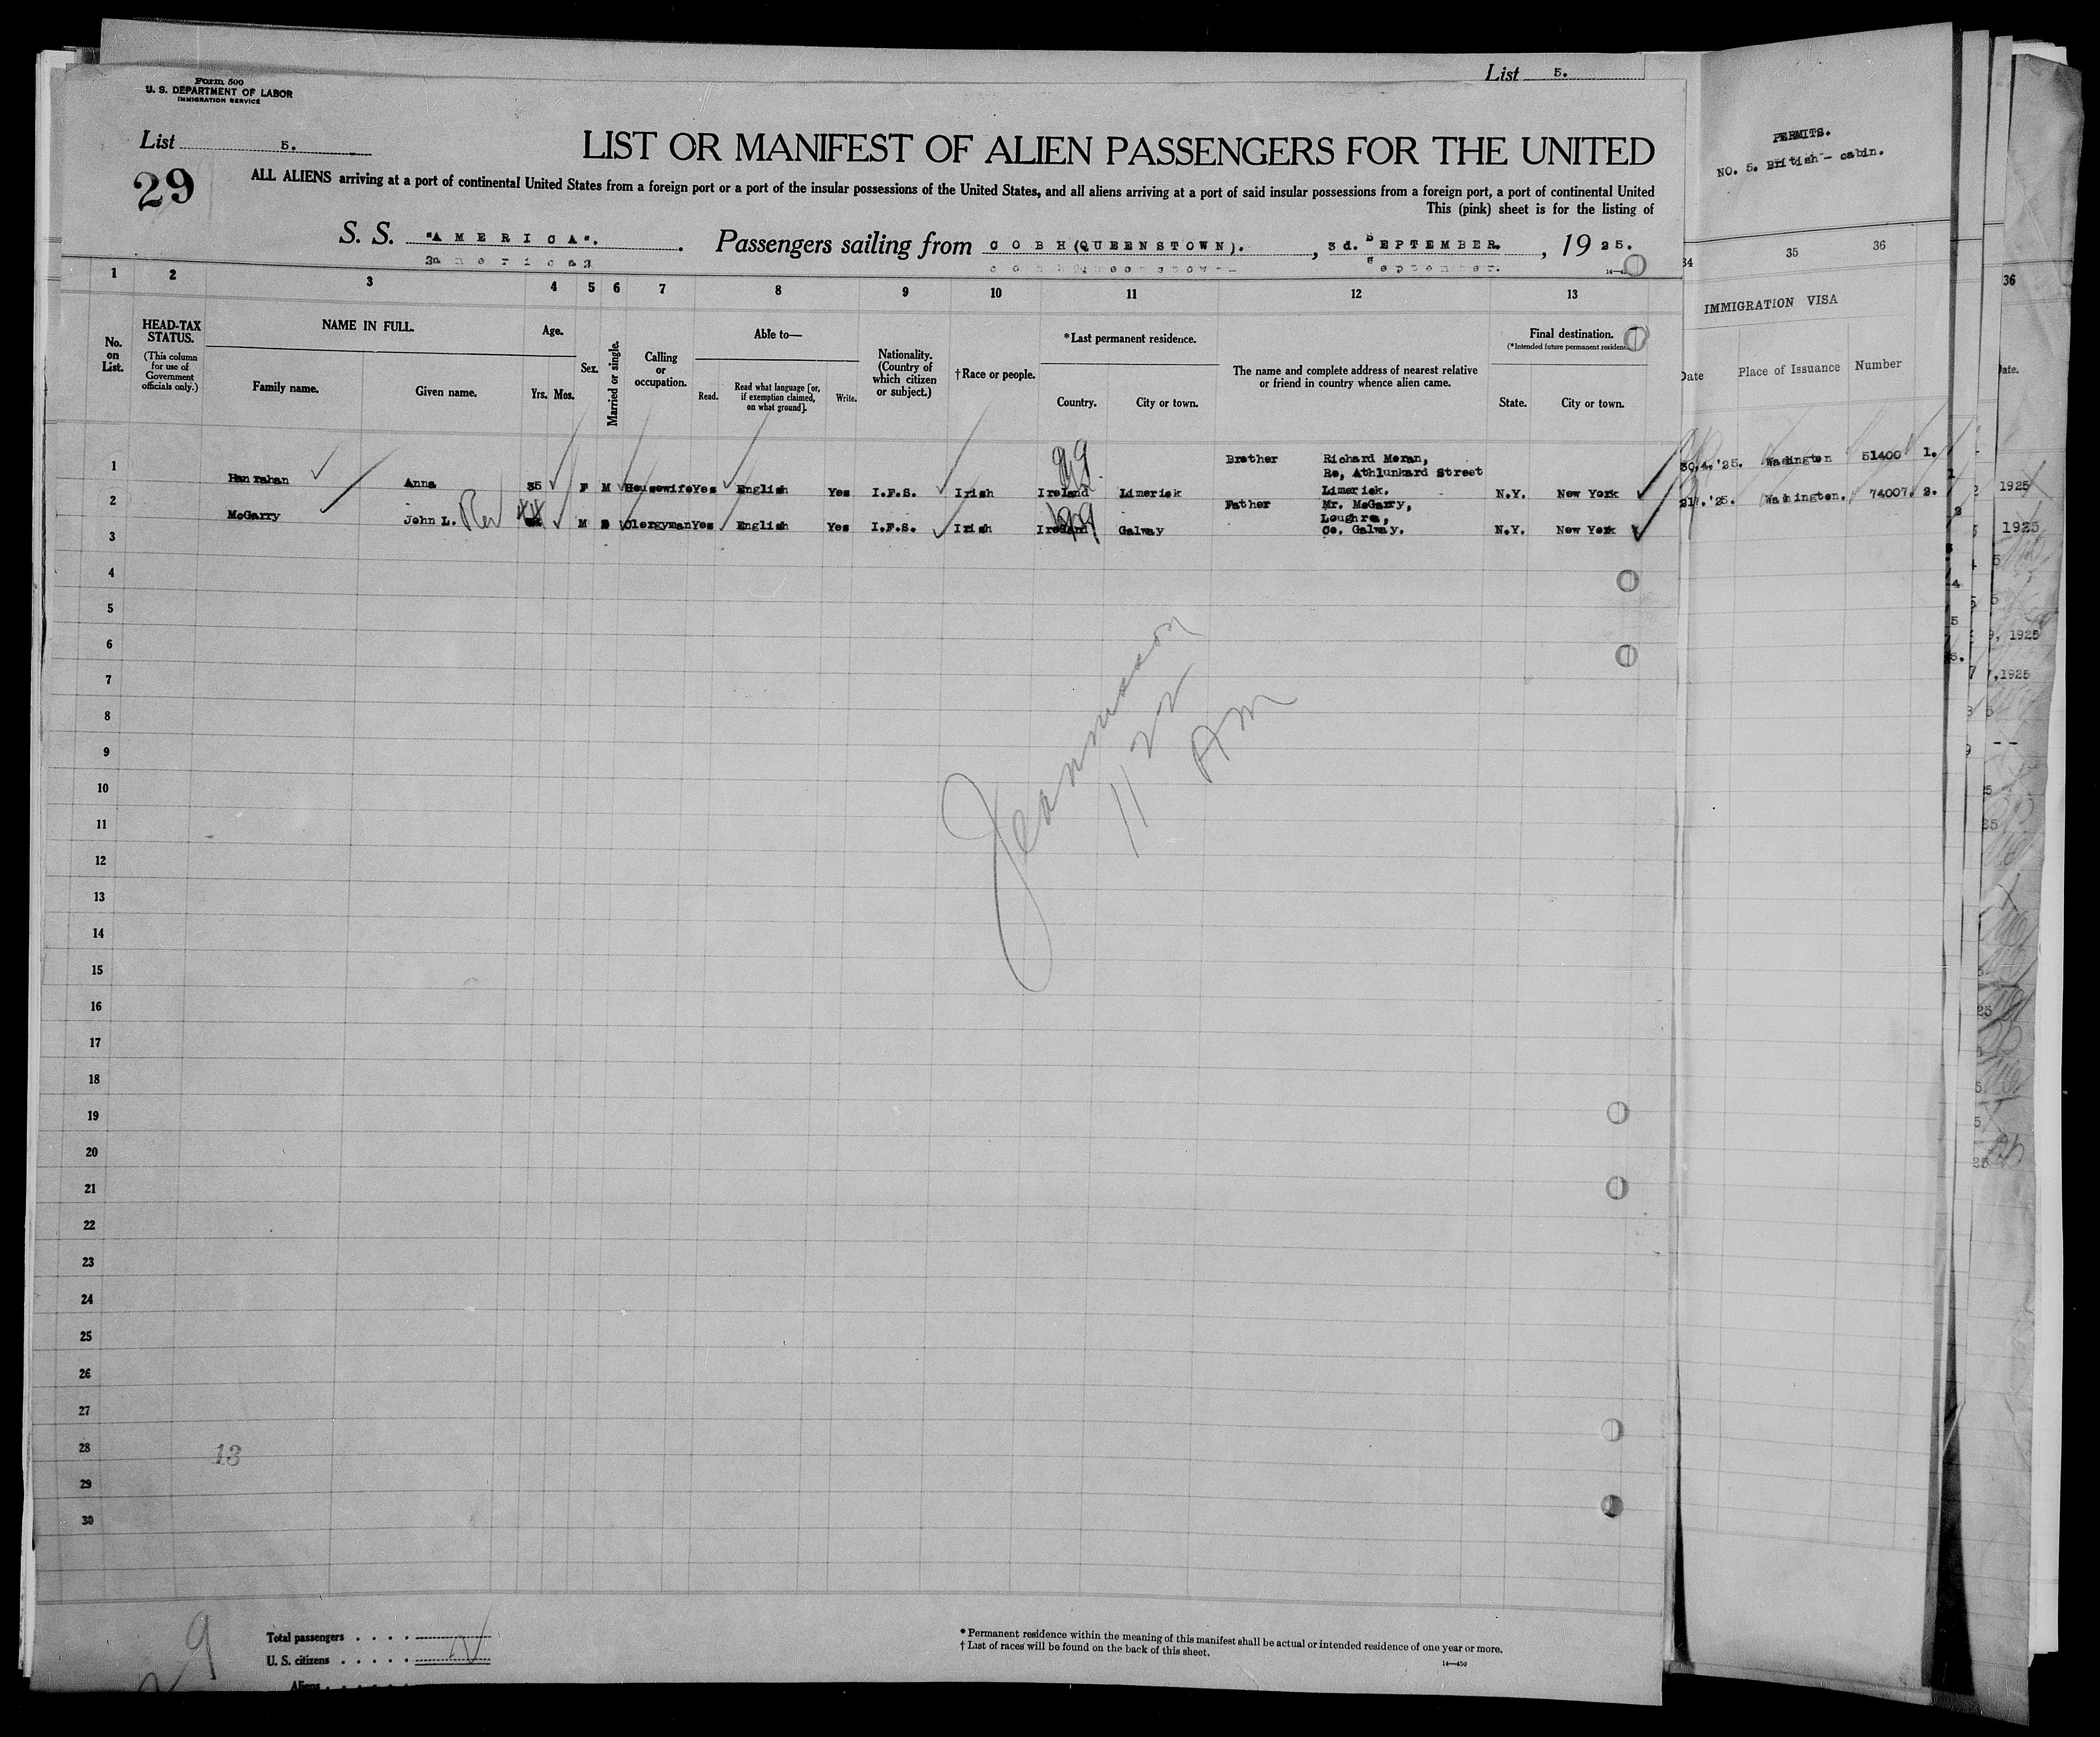 Form 500
U. S. DEPARTMENT OF LABOR
IMMIGRATION SERVICE
List 5.
List 5.
29
LIST OR MANIFEST OF ALIEN PASSENGERS FOR THE UNITED
ALL ALIENS arriving at a port of continental United States from a foreign port or a port of the insular possessions of the United States, and all aliens arriving at a port of said insular possessions from a foreign port, a port of continental United
This (pink) sheet is for the listing of
S. S. "AMERICA". Passengers sailing from COBH(QUEENSTOWN). , 3d. SEPTEMBER. , 1925.
1 2 3 4 5 6 7 8 9 10 11 12 13
No. on List.
HEAD-TAX STATUS.
(This column for use of Government officials only.)
NAME IN FULL.
Family name. Given name.
Age.
Yrs. Mos.
Sex.
Married or single.
Calling or occupation.
Able to—
Read. Read what language [or, if exemption claimed, on what ground]. Write.
Nationality. (Country of which citizen or subject.)
†Race or people.
*Last permanent residence.
Country. City or town.
The name and complete address of nearest relative or friend in country whence alien came.
Final destination.
(*Intended future permanent residen
State. City or town.
1 Hanrahan Anna 35 F M Housewife Yes English Yes I.F.S. Irish Ireland Limerick Brother Richard Moran,
Re, Athlunkard Street
Limerick. N.Y. New York
2 McGarry John L. Rev M S Clergyman Yes English Yes I.F.S. Irish Ireland Galway Father Mr. McGarry,
Loughrea,
Co. Galway. N.Y. New York
3
4
5
6
7
8
9
10
11
12
13
14
15
16
17
18
19
20
21
22
23
24
25
26
27
28
29
30
11 22
AM
13
29
Total passengers
U. S. citizens
Aliens
* Permanent residence within the meaning of this manifest shall be actual or intended residence of one year or more.
† List of races will be found on the back of this sheet.
14—450
PERMITS.
NO. 5. British - cabin.
34 35 36
IMMIGRATION VISA
Date Place of Issuance Number
30.4.'25. Washington 51400 1.
'25. Washington. 74007. 2.
36
ate.
1925
1925
9, 1925
7,1925